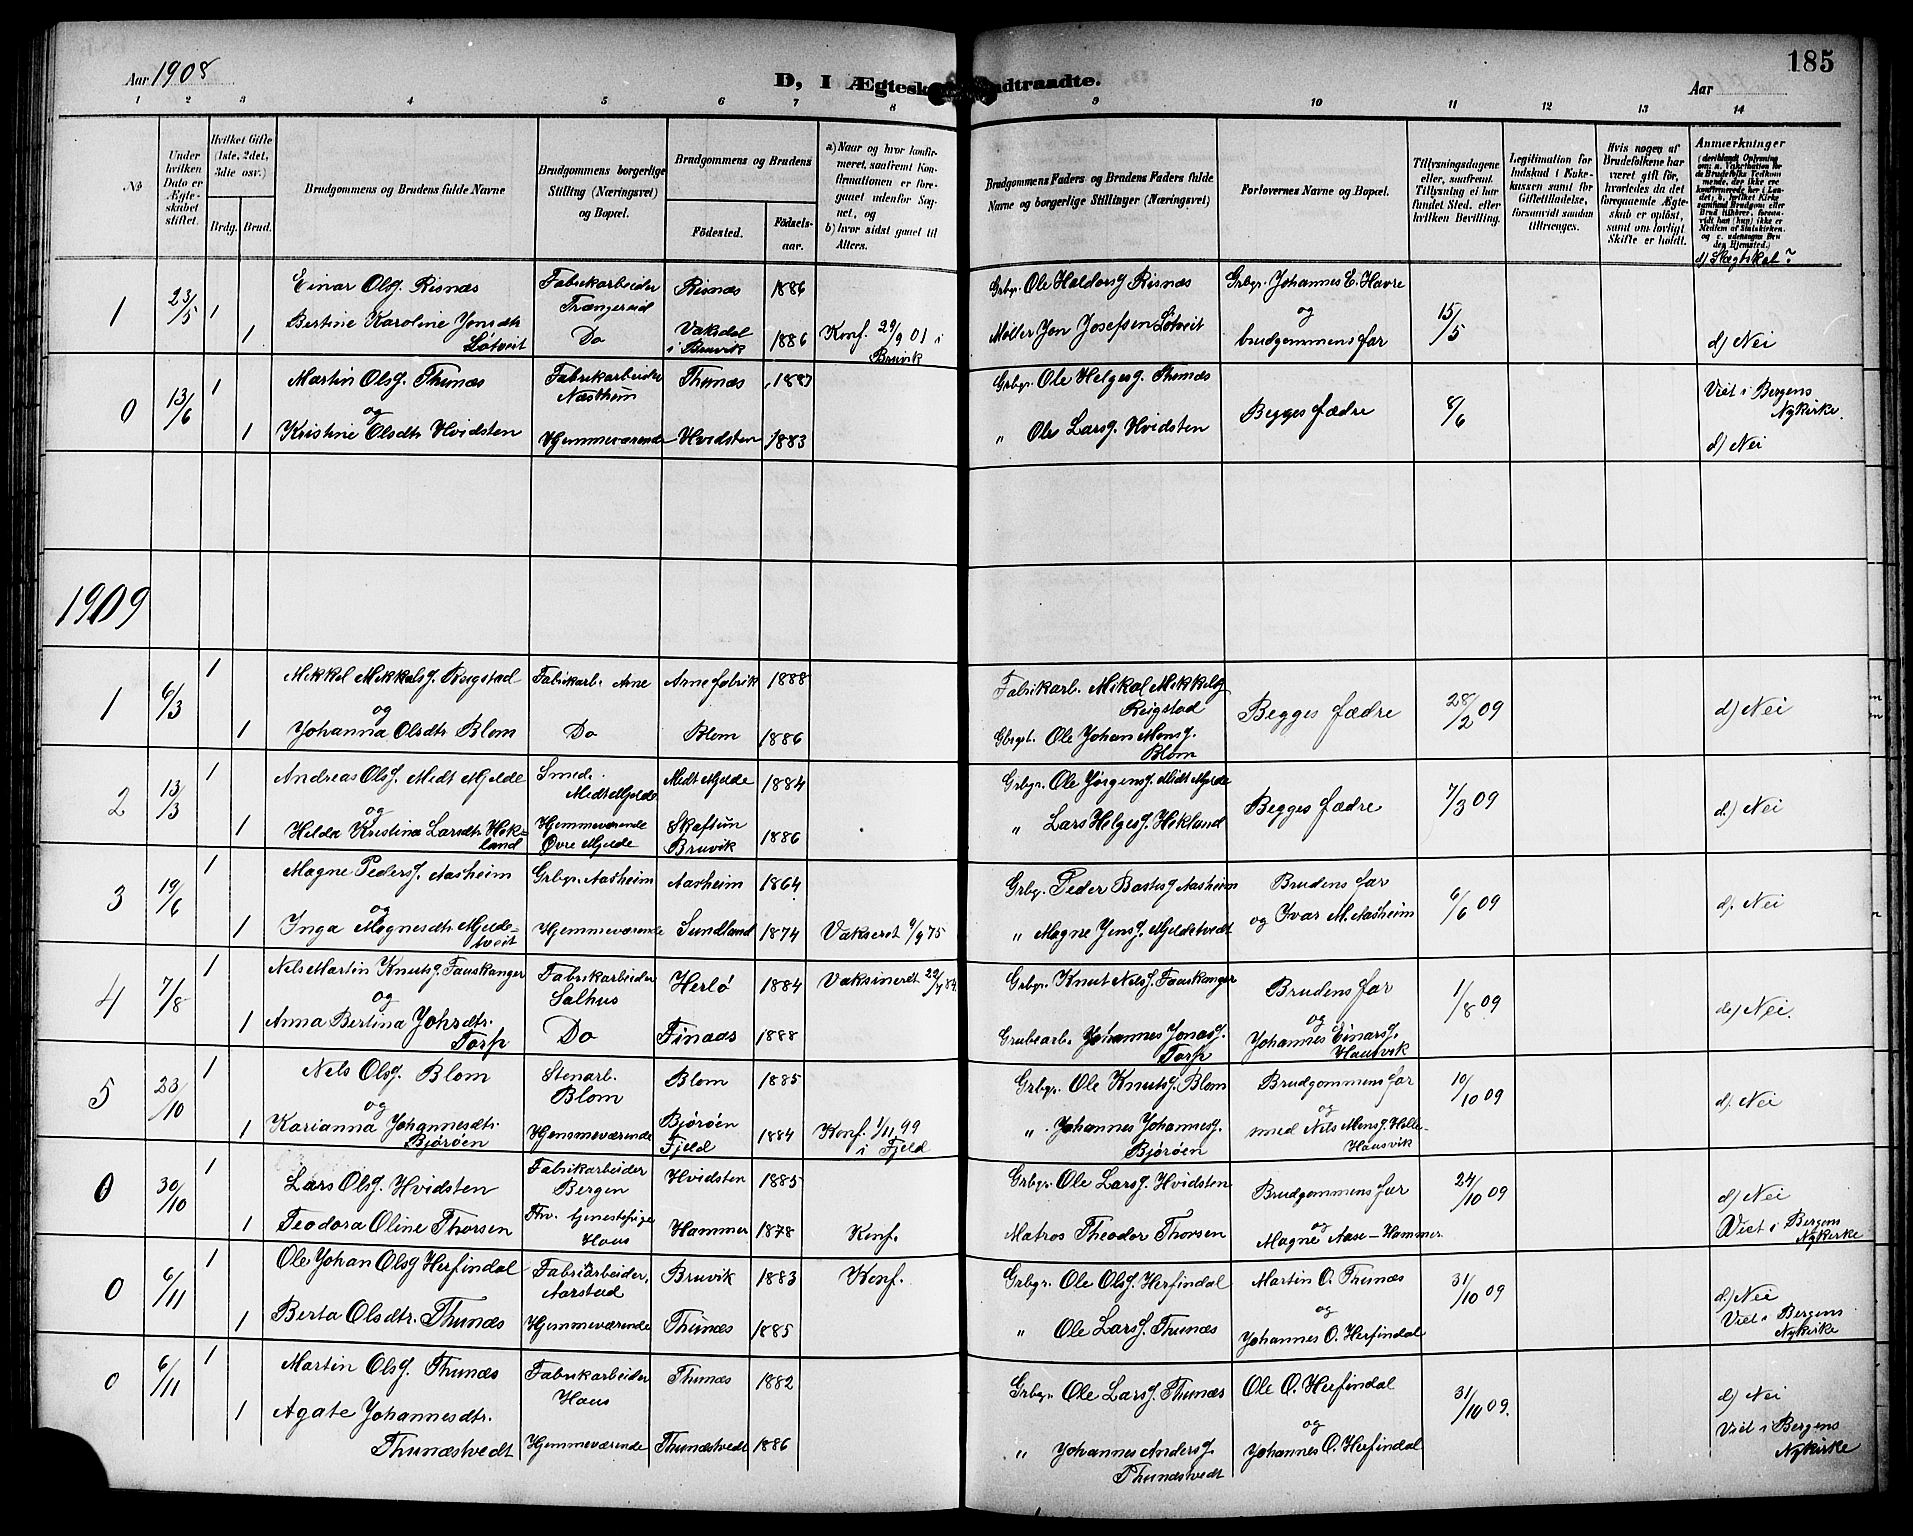 185
Aar 1908
D, I Ægtesk
dtraadte.
Aar
1 2 3 4 5 6 7 8 9 10 11 12 13 14
No
Under hvilken Dato er Ægteskabet stiftet.
Hvilket Gifte (1ste, 2det, 3die osv.)
Brdg. Brud.
Brudgommens og Brudens fulde Navne
Brudgommens borgerlige Stilling (Næringsvei) og Bopæl.
Brudgommens og Brudens
Fødested.
Fødselsaar.
a) Naar og hvor konfirmeret, saafremt Konfirmationen er foregaaet udenfor Sognet, og
b) hvor sidst gaaet til Alters.
Brudgommens Faders og Brudens Faders fulde Navne og borgerlige Stillinger (Næringsvei)
Forlovernes Navne og Bopæl.
Tillysningsdagene eller, saafremt Tillysning ei har fundet Sted, efter hvilken Bevilling.
Legitimation for Indskud i Enkekassen samt for Giftetilladelse, forsaavidt saadan tiltrænges.
Hvis nogen af Brudefolkene har været gift før, hvorledes da det foregaaende Ægteskab er opløst, samt om lovligt Skifte er holdt.
Anmærkninger
d) Slægtskab?
1 23/5 1 Einar Olsg. Risnæs Fabrikarbeider Trængereid Risnæs 1886 Grbgr. Ole Haldorsg Risnæs Grbgr. Johannes E. Havre
og
15/5
1 Bertine Karoline Jonsdtr Lotveit Do Vaksdal i Bruvik 1886 Konf. 29/9 01 i Bruvik Møller Jon Josefsen Lotveit brudgommens far d) Nei
0 13/6 1 Martin Olsg. Thunæs Fabrikarbeider Næstheim Thunæs 1887 Grbgr. Ole Helgesg. Thunæs Begges fædre 8/6 Viet i Bergens Nykirke
og
1 Kristine Olsdtr Hvidsten Hjemmeværende Hvidsten 1883 " Ole Larsg. Hvidsten d) Nei
1909
1 6/3 1 Mikkel Mikkelsg. Reigstad Fabrikarb. Arne Arne fabrik 1888 Fabrikarb. Mikal Mikkelsg Reigstad Begges fædre 28/2 09 d) Nei
og
1 Johanna Olsdtr Blom Do Blom 1886 Gbrgt. Ole Johan Monsg. Blom
2 13/3 1 Andreas Olsg. Midt Mjelde Smed. Midt Mjelde Midt Mjelde 1884 Grbgr. Ole Jørgensg. Midt Mjelde Begges fædre 7/3 09 d.) Nei
og
1 Hilda Kristina Larsdtr Hekland Hjemmeværende Øvre Mjelde Skaftun Bruvik 1886 " Lars Helgesg. Hekland
3 19/6 1 Magne Pedersg. Aasheim Grbgr. Aasheim Aasheim 1864 Grbgr. Peder Bastesg Aasheim Brudens far og Ivar M. Aasheim 6/6 09 d. Nei
og
1 Inga Magnesdtr Mjeldetveit Hjemmeværende Sundland 1874 Vakseret 9/9 75 " Magne Jensg. Mjeldetvedt
4 7/8 1 Nels Martin Knutsg. Fauskanger Fabrikarbeider Salhus Herlø 1884 Vaksineret Grbgr. Knut Nelsg. Fauskanger Brudens far 1/8 09 de) Nei.
og
og
1 Anna Bertina Johsdtr. Torp Do Finaas 1888 Grubearb. Johannes Jonasg. Torp Johannes Einarsg. Hausvik
5 23/10 1 Nels Olsg. Blom Stenarb. Blom Blom 1885 Grbgr. Ole Knutsg. Blom Brudgommens far 10/10 09 d. Nei
og
og
1 Karianna Johannesdtr. Bjørøen Hjemmeværende Bjørøen Fjeld 1884 Konf. 1/11 99 i Fjeld " Johannes Johannesg. Bjørøen smed Nils Monsg. Helle-Hausvik
0 30/10 1 Lars Olsg. Hvidsten Fabrikarbeider Bergen Hvidsten 1885 Grbgr. Ole Larsg. Hvidsten Brudgommens far 24/10 09 d) Nei
og
1 Teodora Oline Thorsen Fhv. tjenestepige Haus Hammer 1878 Konf. Matros Theodor Thorsen Magne Aase-Hammer Viet i Bergens Nykirke
0 6/11 1 Ole Johan Olsg Herfindal Fabrikarbeider, Aarstad Bruvik 1883 Konf. Grbgr. Ole Olsg. Herfindal Martin O. Thunæs 31/10 09 d.) Nei
og
1 Berta Olsdtr. Thunæs Hjemmeværende Thunæs 1885 " Ole Larsg. Thunæs Johannes O. Herfindal Viet i Bergens Nykirke
0 6/11 1 Martin Olsg. Thunæs Fabrikarbeider Haus Thunæs 1882 Grbgr Ole Larsg. Thunæs Ole O. Herfindal 31/10 09. d) Nei
og
1 Agate Johannesdtr. Thunæstvedt Hjemmeværende Thunæstvedt 1886 " Johannes Andersg. Thunæstvedt Johannes O. Herfindal Viet i Bergens Nykirke